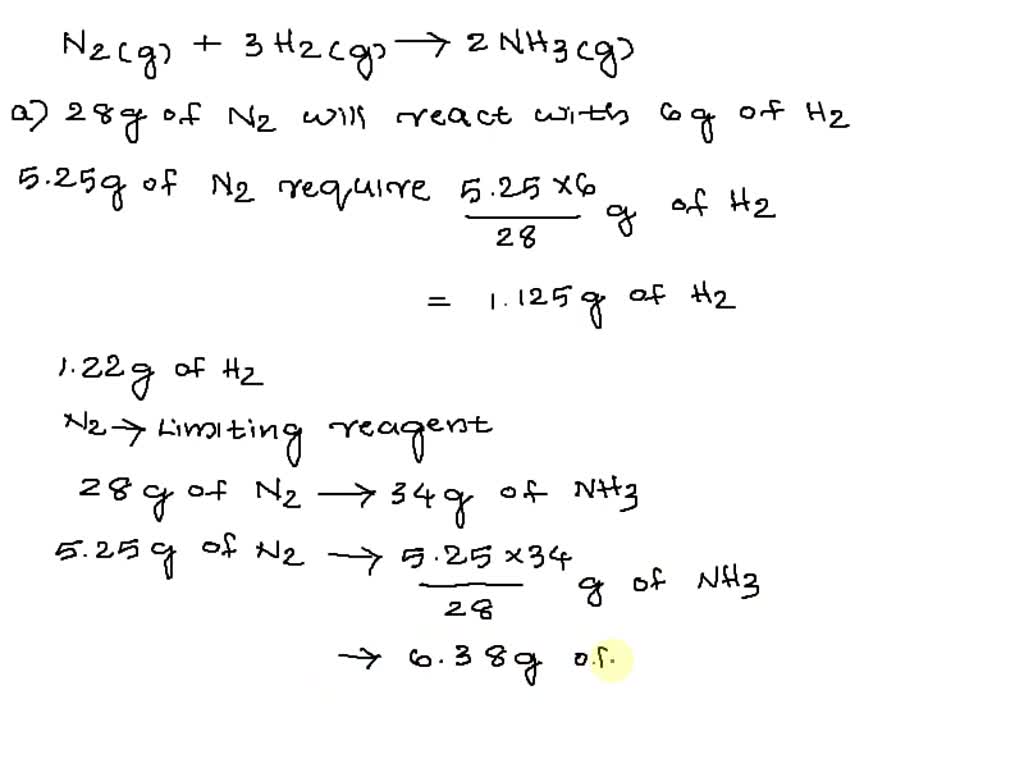 N2(g) + 3H2(g) → 2NH3(g)
a) 28g of N2 will react with 6g of H2
5.25g of N2 require 5.25×6/28 g of H2
= 1.125g of H2
1.22g of H2
N2 → Limiting reagent
28g of N2 → 34g of NH3
5.25g of N2 → 5.25×34/28 g of NH3
→ 6.38g of